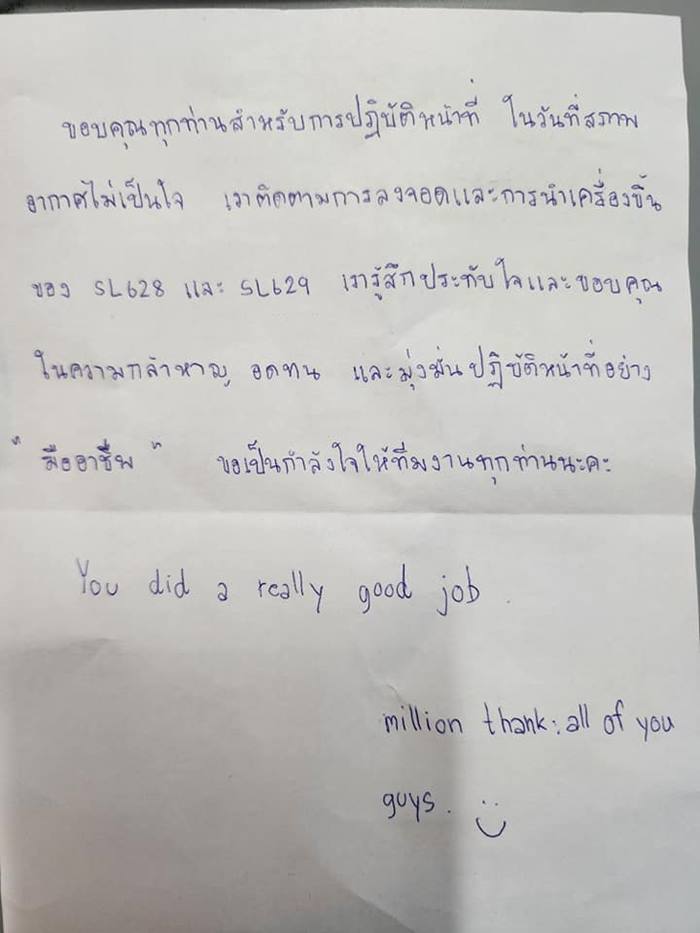 ขอบคุณทุกท่านสำหรับการปฏิบัติหน้าที่ ในวันที่สภาพ
อากาศไม่เป็นใจ เราติดตามการลงจอดและการนำเครื่องขึ้น
ของ SL628 และ SL629 เรารู้สึกประทับใจและขอบคุณ
ในความกล้าหาญ อดทน และมุ่งมั่นปฏิบัติหน้าที่อย่าง
"มืออาชีพ" ขอเป็นกำลังใจให้ทีมงานทุกท่านนะคะ
You did a really good job.
million thank: all of you
guys.